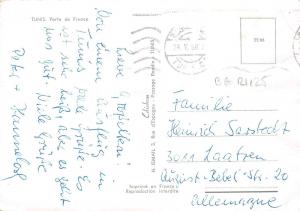 TUNIS. Porte de France
Liebe Großeltern!
Von einem Ausflug in
Tunis viele Grüße. Es
ist sehr heiß, aber es geht
uns gut. Viele Grüße
Peter + Hannelore
Imprimé en France
Reproduction interdite
BG RU25
Familie
Heinrich Sarstedt
3011 Laatzen
August-Bebel-Str. 20
Allemagne